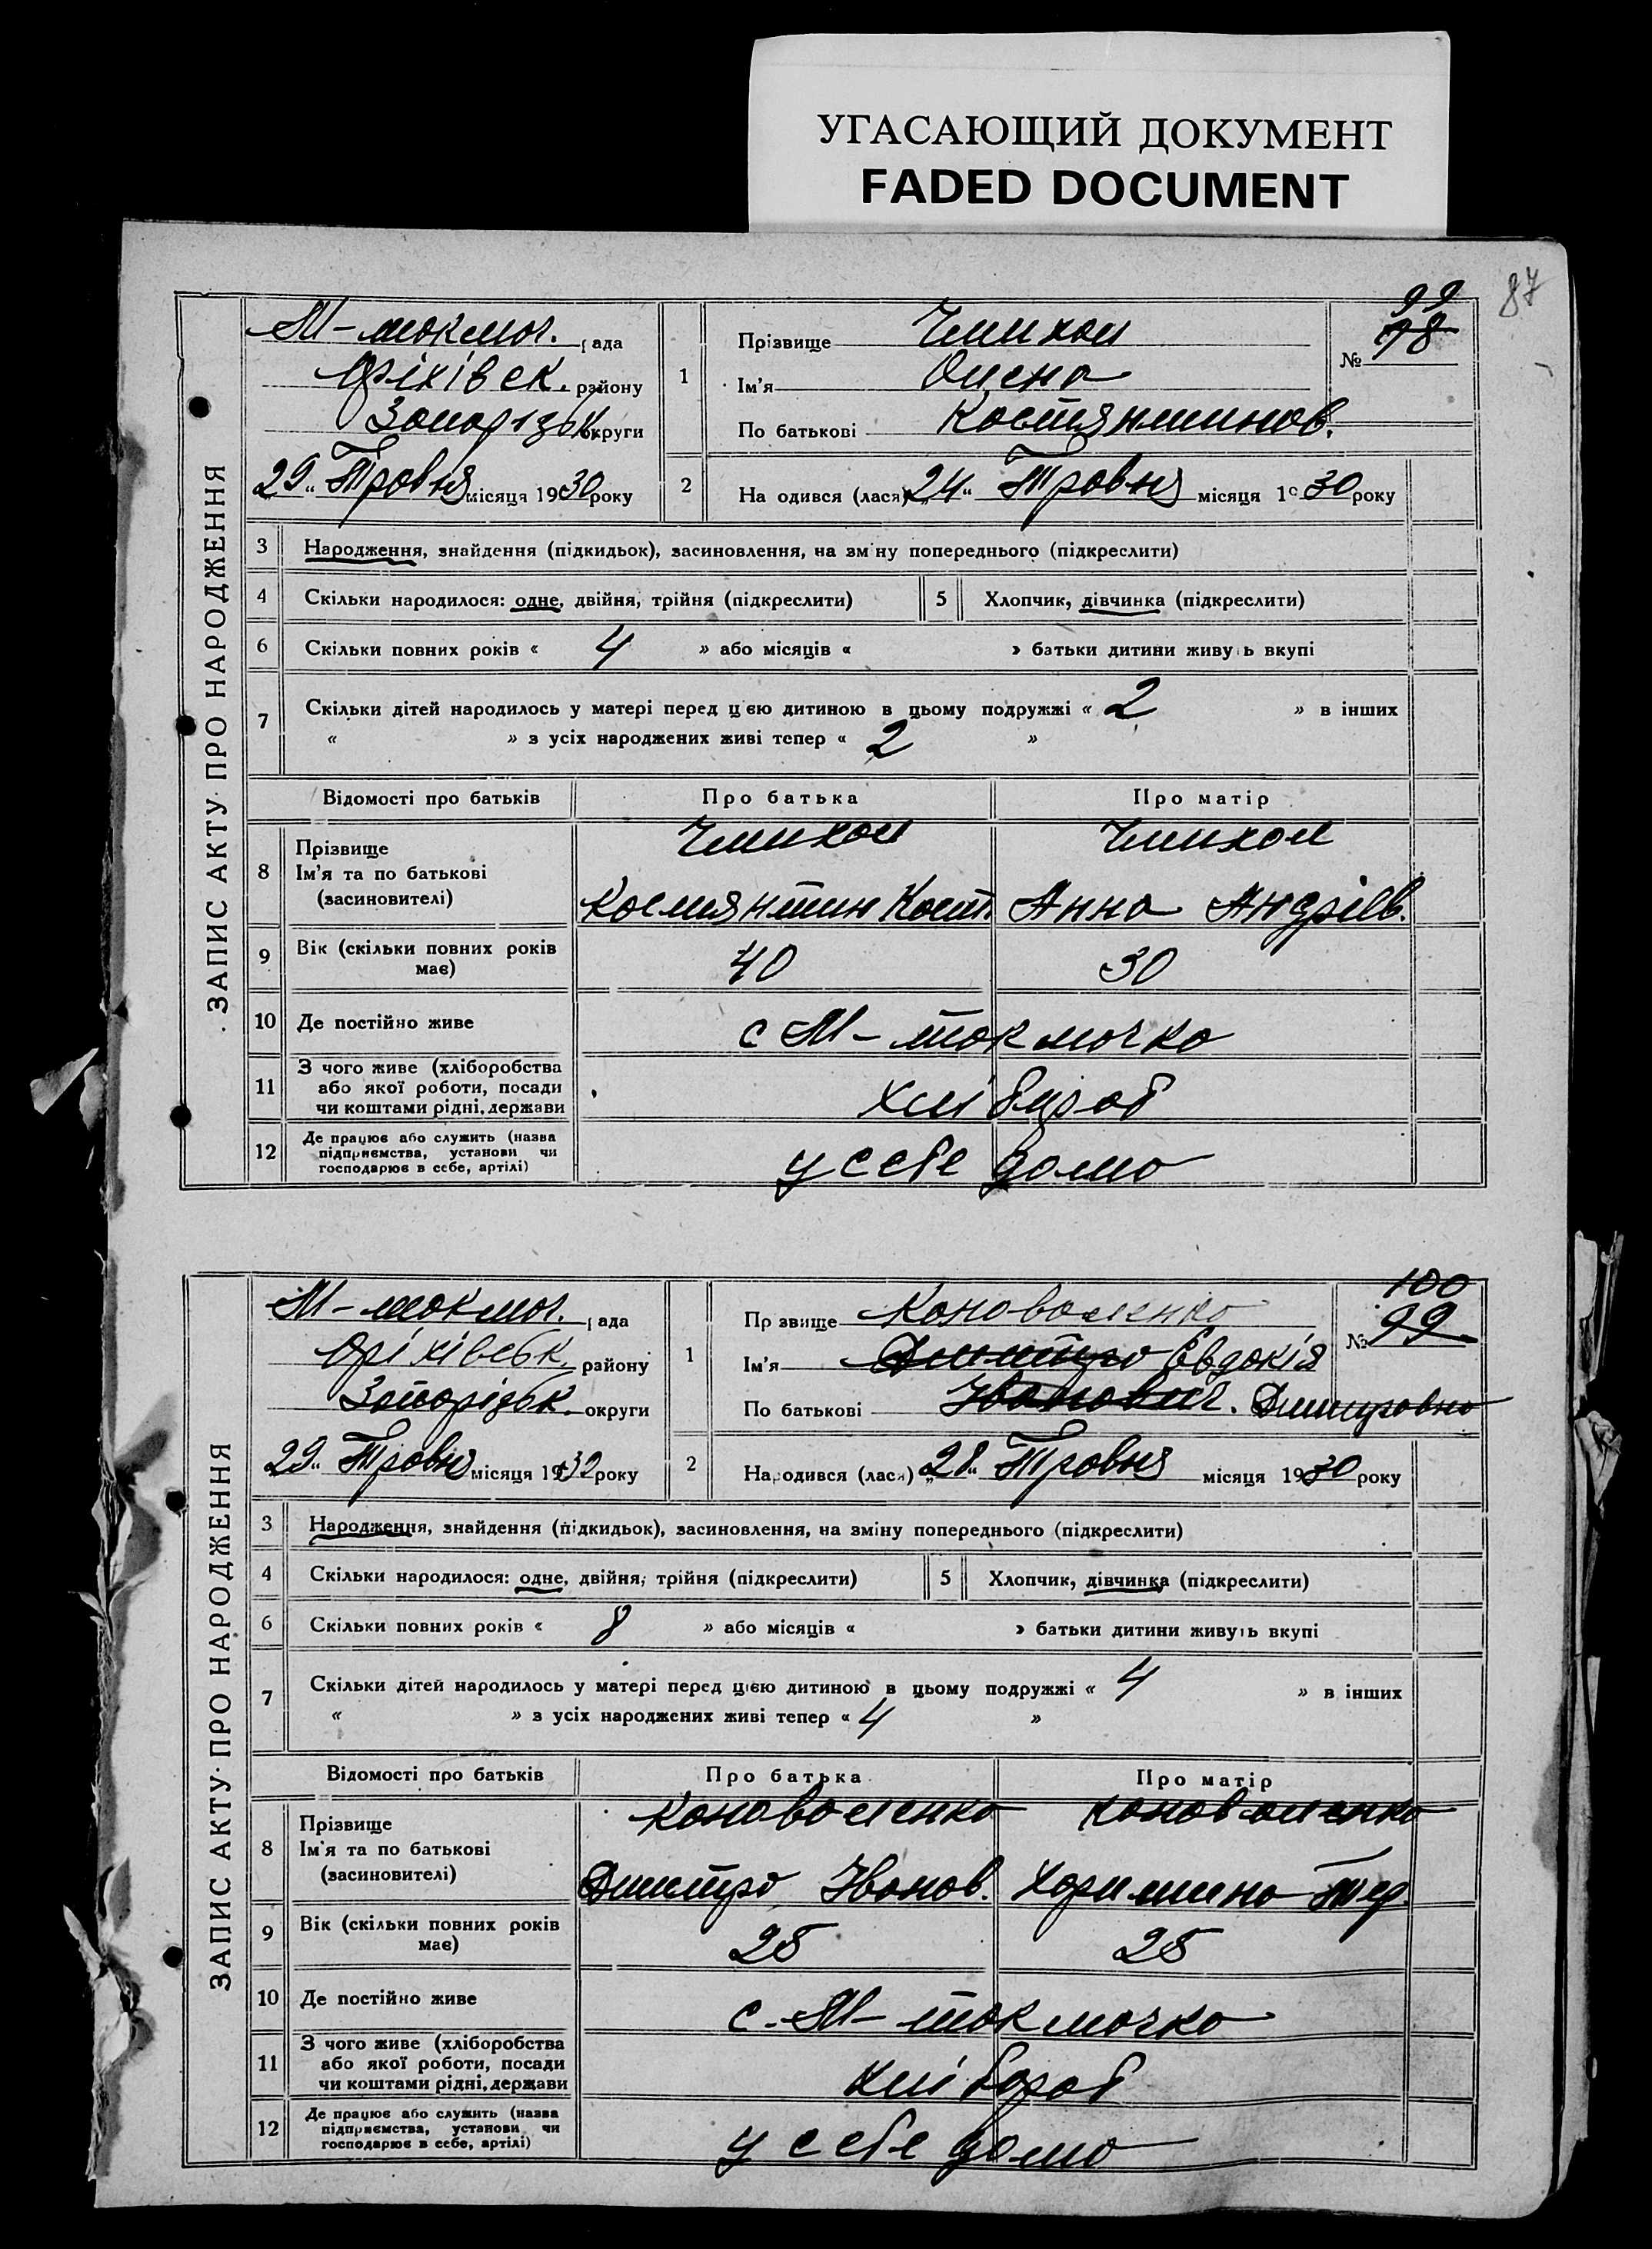 УГАСАЮЩИЙ ДОКУМЕНТ
FADED DOCUMENT
87
ЗАПИС АКТУ ПРО НАРОДЖЕННЯ
М-токмач. рада
Оріхівск. району
Запорізьк. округи
29 Травня місяця 1930 року
1
Прізвище
Ім'я Олена
По батькові Костянтинов.
99
№ 98
2
На одився (лася) „24“ Травня місяця 1930 року
3 Народження, знайдення (підкидьок), засиновлення, на зм ну попереднього (підкреслити)
4 Скільки народилося: одне, двійня, трійня (підкреслити) 5 Хлопчик, дівчинка (підкреслити)
6 Скільки повних років « 4 » або місяців « » батьки дитини живуть вкупі
7 Скільки дітей народилось у матері перед цією дитиною в цьому подружжі « 2 » в інших
« » з усіх народжених живі тепер « 2 »
Відомості про батьків Про батька Про матір
8 Прізвище
Ім'я та по батькові
(засиновителі)
Костянтин Кост. Анна Андріів.
9 Вік (скільки повних років має) 40 30
10 Де постійно живе с М-токмачка
11 З чого живе (хліборобства
або якої роботи, посади
чи коштами рідні, держави
хлібороб
12 Де працює або служить (назва
підприємства, установи чи
господарює в себе, артілі)
у себе дома
ЗАПИС АКТУ ПРО НАРОДЖЕННЯ
М-токмач. рада
Оріхівськ. району
Запорізьк. округи
29 Травня місяця 1930 року
1
Пр звище Коноваленко
Ім'я Дмитро Євдокія
По батькові Іванович. Дмитровна
100
№ 99
2
Народився (лася) „28“ Травня місяця 1930 року
3 Народження, знайдення (підкидьок), засиновлення, на зміну попереднього (підкреслити)
4 Скільки народилося: одне, двійня, трійня (підкреслити) 5 Хлопчик, дівчинка (підкреслити)
6 Скільки повних років « 8 » або місяців « » батьки дитини живуть вкупі
7 Скільки дітей народилось у матері перед цією дитиною в цьому подружжі « 4 » в інших
« » з усіх народжених живі тепер « 4 »
Відомості про батьків Про батька Про матір
8 Прізвище
Ім'я та по батькові
(засиновителі)
Коноваленко Коноваленко
Дмитро Іванов. Харитина
9 Вік (скільки повних років має)
10 Де постійно живе с-М-токмачка
11 З чого живе (хліборобства
або якої роботи, посади
чи коштами рідні, держави
хлібороб
12 Де працює або служить (назва
підприємства, установи чи
господарює в себе, артілі)
у себе дома